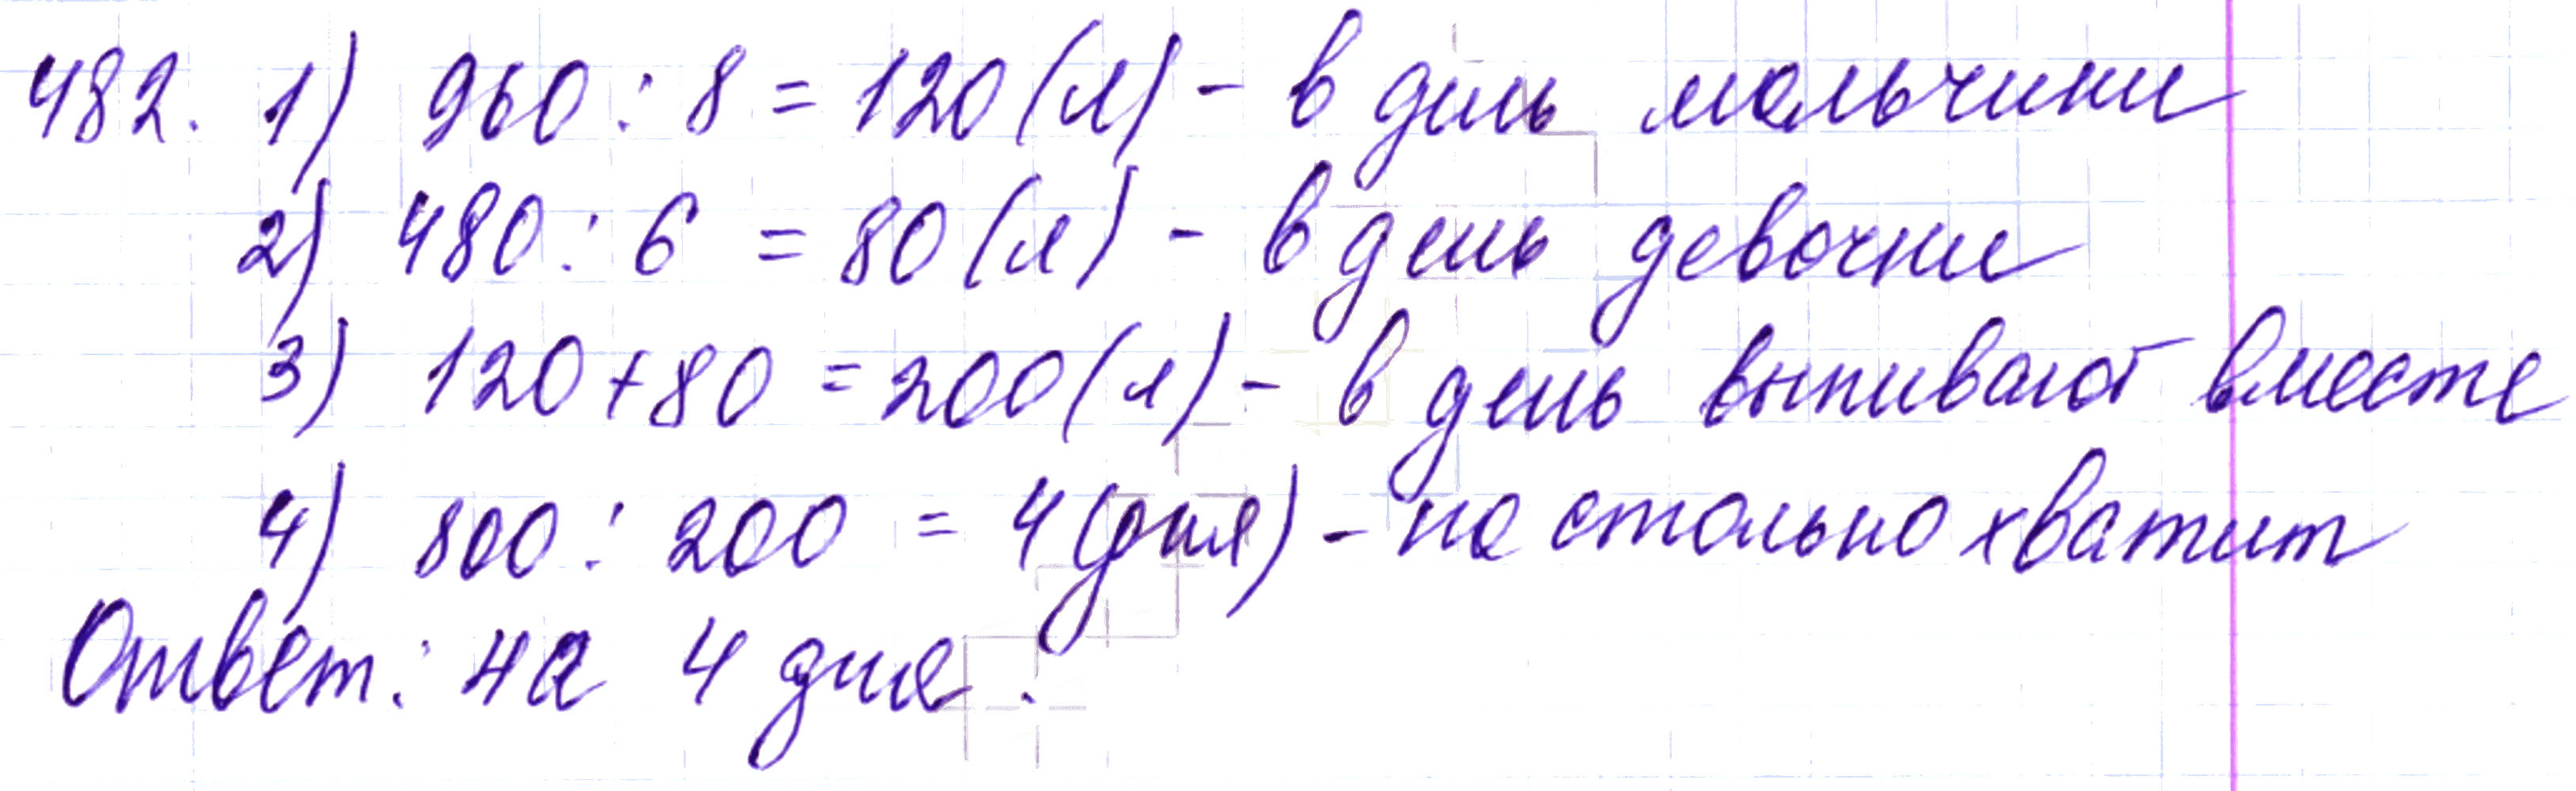 482. 1) 960 : 8 = 120 (л) - в день мальчики
2) 480 : 6 = 80 (л) - в день девочки
3) 120 + 80 = 200 (л) - в день выпивают вместе
4) 800 : 200 = 4 (дня) - на столько хватит
Ответ: на 4 дня.